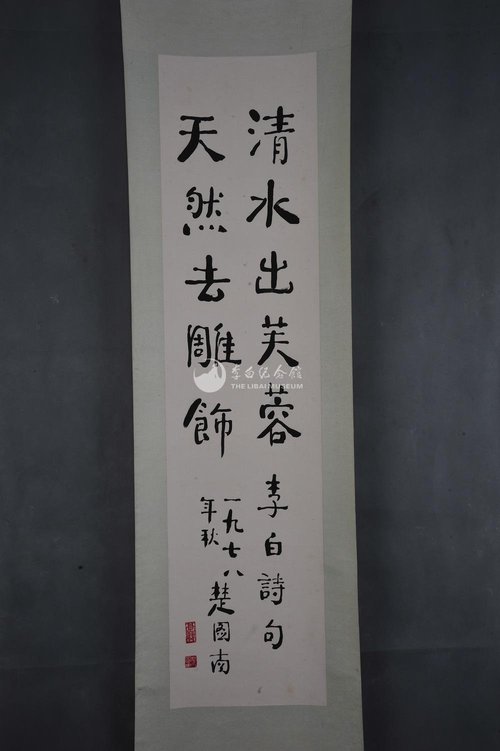 清水出芙蓉
天然去雕飾
李白詩句
一九七八
年秋
楚圖南
李白纪念馆
THE LIBAI MUSEUM